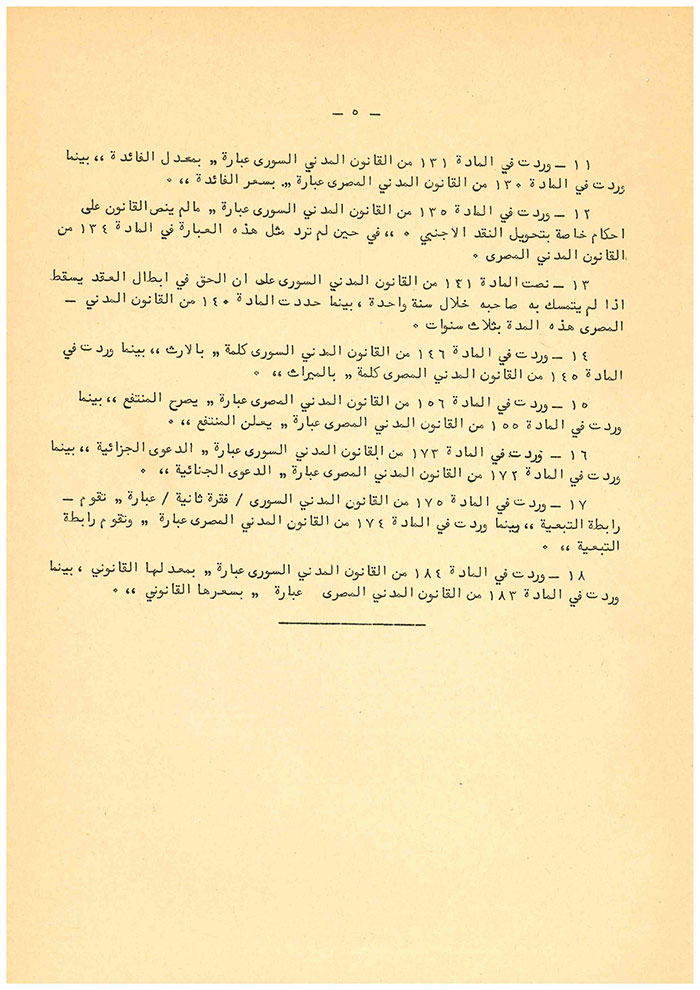 — ٥ —
١١ — وردت في المادة ١٣١ من القانون المدني السورى عبارة „ بمعدل الفائدة ،، بينما
وردت في المادة ١٣٠ من القانون المدني المصرى عبارة „ بسعر الفائدة ،، ٠
١٢ — وردت في المادة ١٣٥ من القانون المدني السورى عبارة „ مالم ينص القانون على
احكام خاصة بتحويل النقد الاجنبي ٠ ،، في حين لم ترد مثل هذه العبارة في المادة ١٣٤ من
القانون المدني المصرى ٠
١٣ — نصت المادة ١٤١ من القانون المدني السورى على ان الحق في ابطال العقد يسقط
اذا لم يتمسك به صاحبه خلال سنة واحدة ، بينما حددت المادة ١٤٠ من القانون المدني —
المصرى هذه المدة بثلاث سنوات ٠
١٤ — وردت في المادة ١٤٦ من القانون المدني السورى كلمة „ بالارث ،، بينما وردت في
المادة ١٤٥ من القانون المدني المصرى كلمة „ بالميراث ،، ٠
١٥ — وردت في المادة ١٥٦ من القانون المدني المصرى عبارة „ يصرح المنتفع ،، بينما
وردت في المادة ١٥٥ من القانون المدني المصرى عبارة „ يعلن المنتفع ،، ٠
١٦ — وردت في المادة ١٧٣ من القانون المدني السورى عبارة „ الدعوى الجزائية ،، بينما
وردت في المادة ١٧٢ من القانون المدني المصرى عبارة „ الدعوى الجنائية ،، ٠
١٧ — وردت في المادة ١٧٥ من القانون المدني السورى / فقرة ثانية / عبارة „ تقوم —
رابطة التبعية ،، وبينما وردت في المادة ١٧٤ من القانون المدني المصرى عبارة „ وتقوم رابطة
التبعية ،، ٠
١٨ — وردت في المادة ١٨٤ من القانون المدني السورى عبارة „ بمعدلها القانوني ، بينما
وردت في المادة ١٨٣ من القانون المدني المصرى عبارة „ بسعرها القانوني ،، ٠